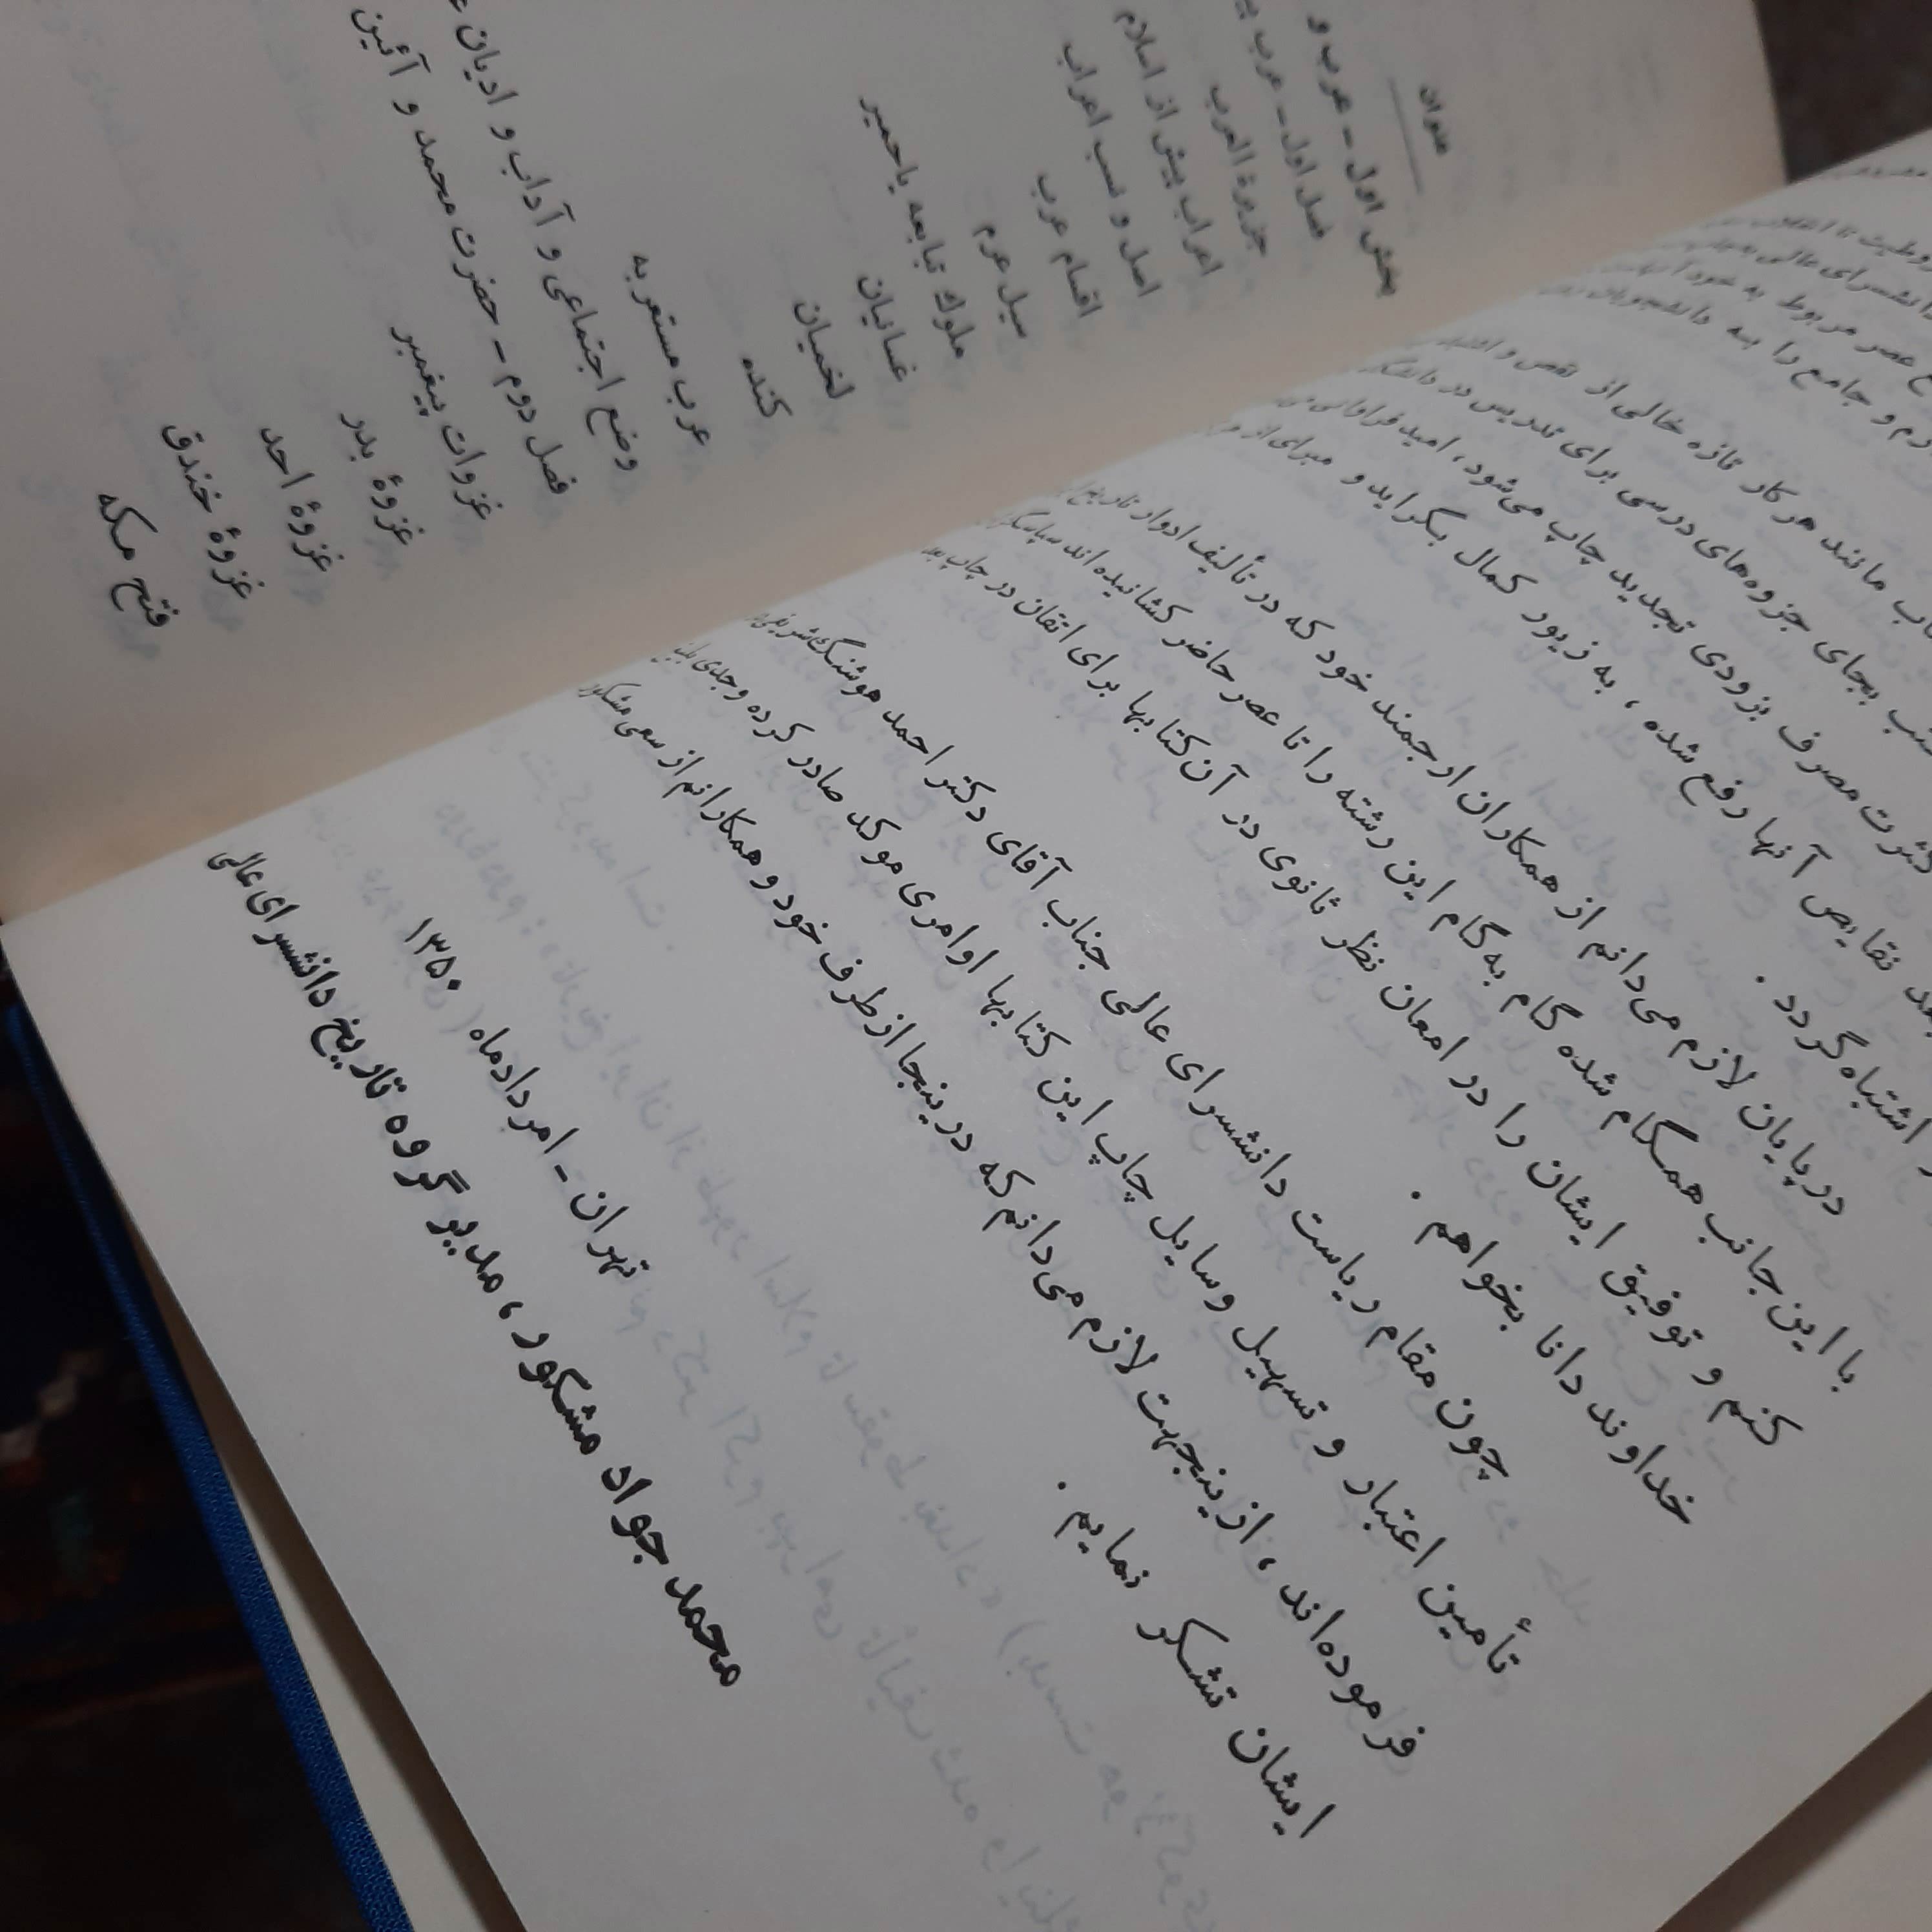 در
وطیت تا
دانشسرای عالی
ع عصر مربوط به خود
و جامع را به دانشجویان
مانند هر کار تازه خالی از نقص و
بجای جزوه‌های درسی برای تدریس در
کثرت مصرف بزودی تجدید چاپ می‌شود، امید فراوانی
نقایص آنها رفع شده ، به زیور کمال بگراید و مبرای از
اشتباه گردد .
در پایان لازم می‌دانم از همکاران ارجمند خود که در تألیف ادوار
با این جانب همگام شده گام به گام این رشته را تا عصر حاضر کشانیده اند
کنم و توفیق ایشان را در امعان نظر ثانوی در آن کتابها برای اتقان در چاپ بعد
خداوند دانا بخواهم .
چون مقام ریاست دانشسرای عالی جناب آقای دکتر احمد هوشنگ
تأمین اعتبار و تسهیل وسایل چاپ این کتابها اوامری موکد صادر کرده وجدی
فرموده‌اند ، از ینجهت لازم می‌دانم که در ینجا از طرف خود و همکارانم از سعی مشکور
ایشان تشکر نمایم .
تهران - امردادماه ۱۳۵۰
محمد جواد مشکور ، مدیر گروه تاریخ دانشسرای عالی
عنوان
بخش اول - عرب و
فصل اول - عرب
جزیرة العرب
اعراب پیش از اسلام
اصل و نسب اعراب
اقسام عرب
سیل عرم
ملوك تبابعه یاحمیر
غسانیان
لخمیان
کنده
عرب مستعربه
وضع اجتماعی و آداب و ادیان
فصل دوم - حضرت محمد و آئین
غزوات پیغمبر
غزوهٔ بدر
غزوهٔ احد
غزوهٔ خندق
فتح مکه